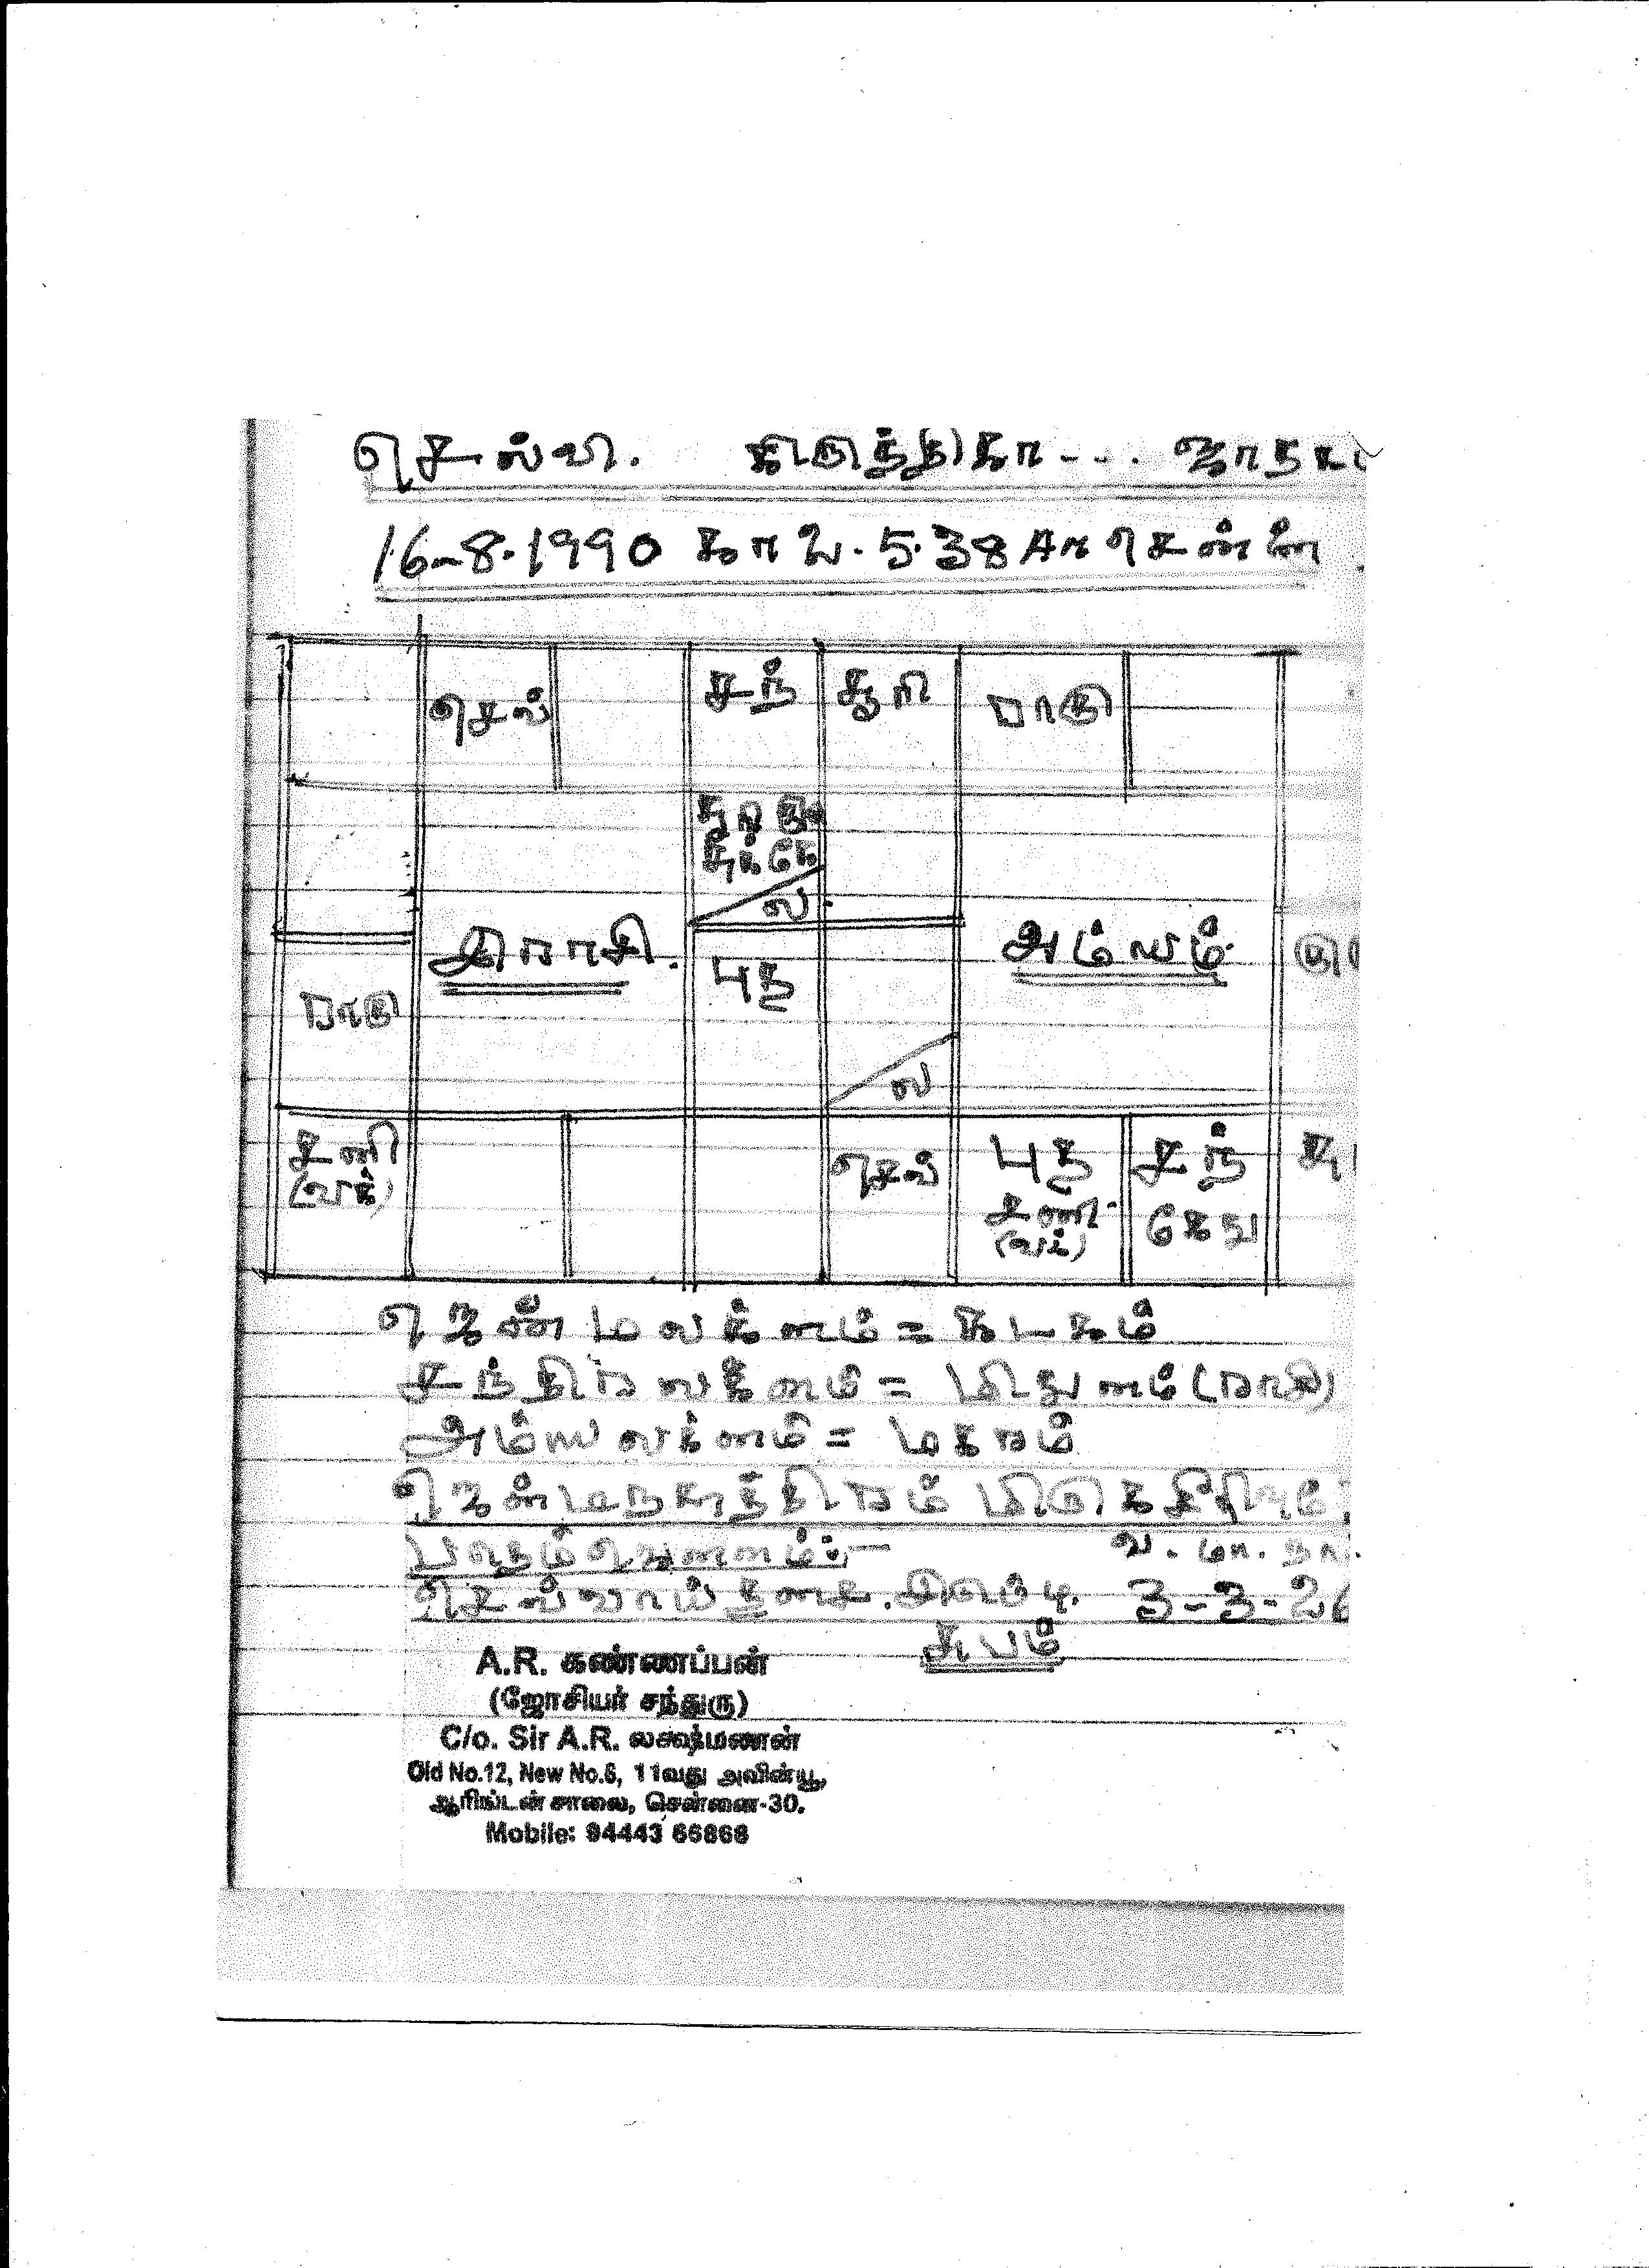 செல்வி. கிருத்திகா - - . ஜாதக
16-8-1990 காலை. 5.38 AM சென்னை
செவ் சந் சூரி ராகு
சூரி குரு
சுக் கே
ல
இராசி. புத அம்ஸம்.
ராகு
ல
சனி செவ் புத சந்
(வக்) சனி கேது
(வக்)
ஜென்ம லக்னம் = கடகம்
சந்திர லக்னம் = மிதுனம் (ராசி)
அம்ஸ லக்னம் = மகரம்
ஜென்ம நக்ஷத்திரம் மிருகசீரிஷம்
வ. மா. நா.
செவ்வாய் திசை. இருப்பு. 3-3-26
சுபம்
A.R. கண்ணப்பன்
(ஜோசியர் சந்துரு)
C/o. Sir A.R. லசஷ்மணன்
Old No.12, New No.6, 11வது அவின்யூ,
ஆரிங்டன் சாலை, சென்னை-30.
Mobile: 94443 66868